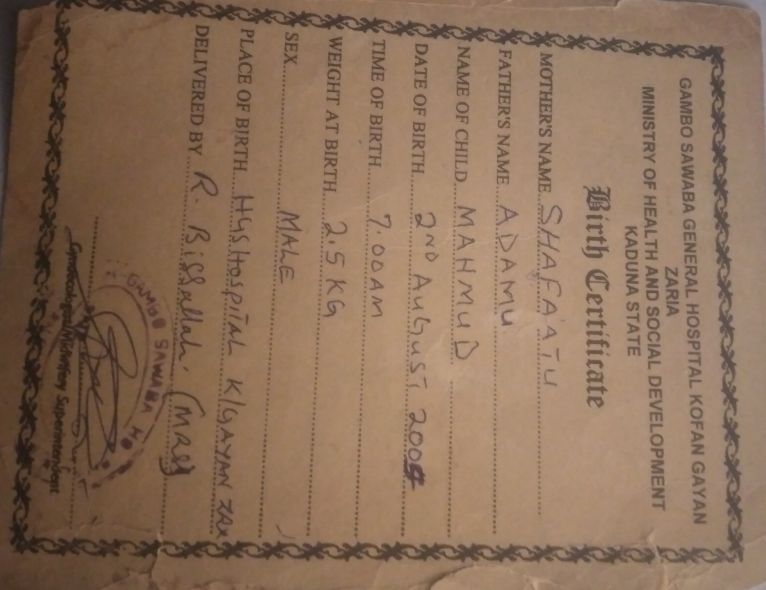 GAMBO SAWABA GENERAL HOSPITAL KOFAN GAYAN
ZARIA
MINISTRY OF HEALTH AND SOCIAL DEVELOPMENT
KADUNA STATE
Birth Certificate
MOTHER'S NAME SHAFA'ATU
FATHER'S NAME ADAMU
NAME OF CHILD MAHMUD
DATE OF BIRTH 2ND AUGUST 2004
TIME OF BIRTH 7.00AM
WEIGHT AT BIRTH 2.5 KG
SEX MALE
PLACE OF BIRTH HGSHospital K/GAYAN ZAR
DELIVERED BY R. Bissallah (MRS)
GAMBO SAWABA
Gynaecologist/Midwifery Superintendent